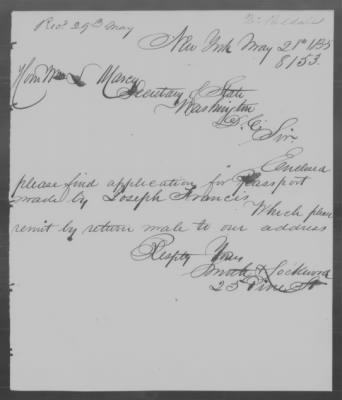 Recd 29th May
New York May 21st 1855
8153.
Hon Wm L Marcy
Secretary of State
Washington
D.C.
Sir
Enclosed
please find application for Passport
made by Joseph Francis
Which please
remit by return male to our address
Respty Yours
Smith & Lockwood
25 Pine St